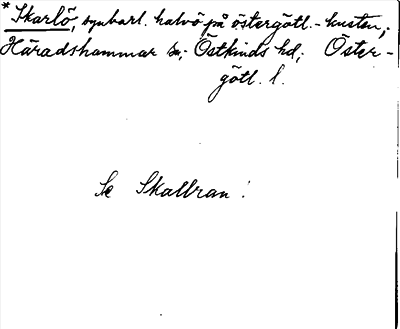 * Skarlö, synbarl. halvö på östergötl.-kusten,
Häradshammar sn, Östkinds hd, Öster-
götl. l.
Se Skallran!